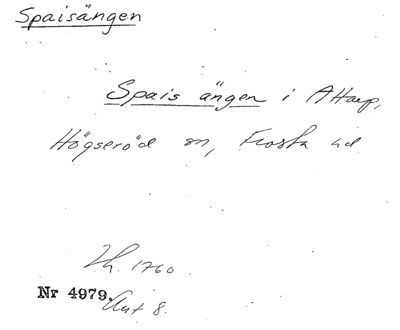 Spaisängen
Spais ängen i Attarp,
Högseröd sn, Frosta hd
Lh. 1760.
Nr 4979. Akt 8.